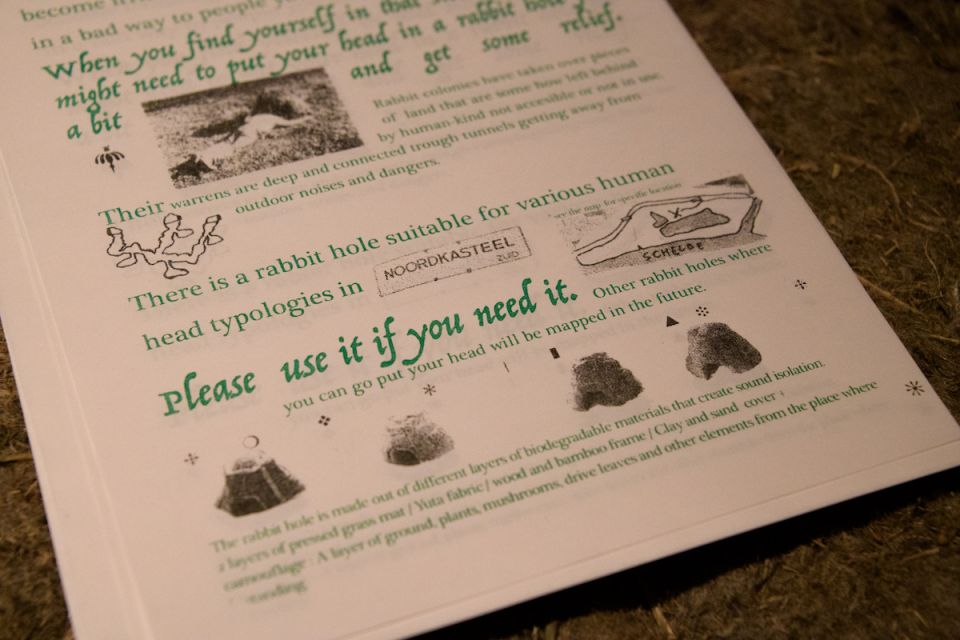 in a bad way to people y
When you find yourself in that
might need to put your head in a rabbit hole
a bit and get some relief.
Rabbit colonies have taken over pieces
of land that are some how left behind
by human-kind not accesible or not in use.
Their warrens are deep and connected trough tunnels getting away from
outdoor noises and dangers.
There is a rabbit hole suitable for various human
see the map for specific location
head typologies in NOORDKASTEEL
ZUID
SCHELDE
Please use it if you need it. Other rabbit holes where
you can go put your head will be mapped in the future.
The rabbit hole is made out of different layers of biodegradable materials that create sound isolation.
2 layers of pressed grass mat / Yuta fabric / wood and bamboo frame / Clay and sand cover /
camouflage : A layer of ground, plants, mushrooms, drive leaves and other elements from the place where